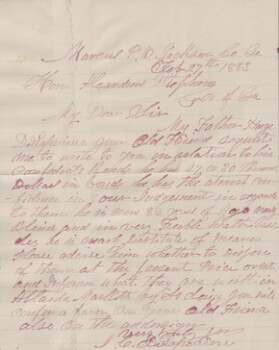 Marcus P.O. Jackson Co Ga
Feb 27th 1883
Hon Alexander Stephens
Gov of Ga
My Dear Sir
My Father
your Old Friend request
me to write to you in relation to his
Confederate Bonds has 20 or 30 thousand
Dollars in Bonds he has the utmost con
fidence in your Judgement in regard
to them he is now 86 years of age
and in very feeble
he is almost Destitute of means
Please advise him whether to dispose
of them at the present Price over
and Inform what they are worth in
Atlanta Market by So doing you will
confer a favor on your Old Friend
also on the
Very Truly yours